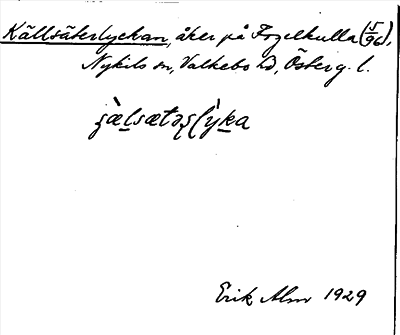 Källsäterlyckan, åker på Fogelkulla (5/96),
Nykils sn, Valkebo hd, Österg. l.
Erik Alm 1929